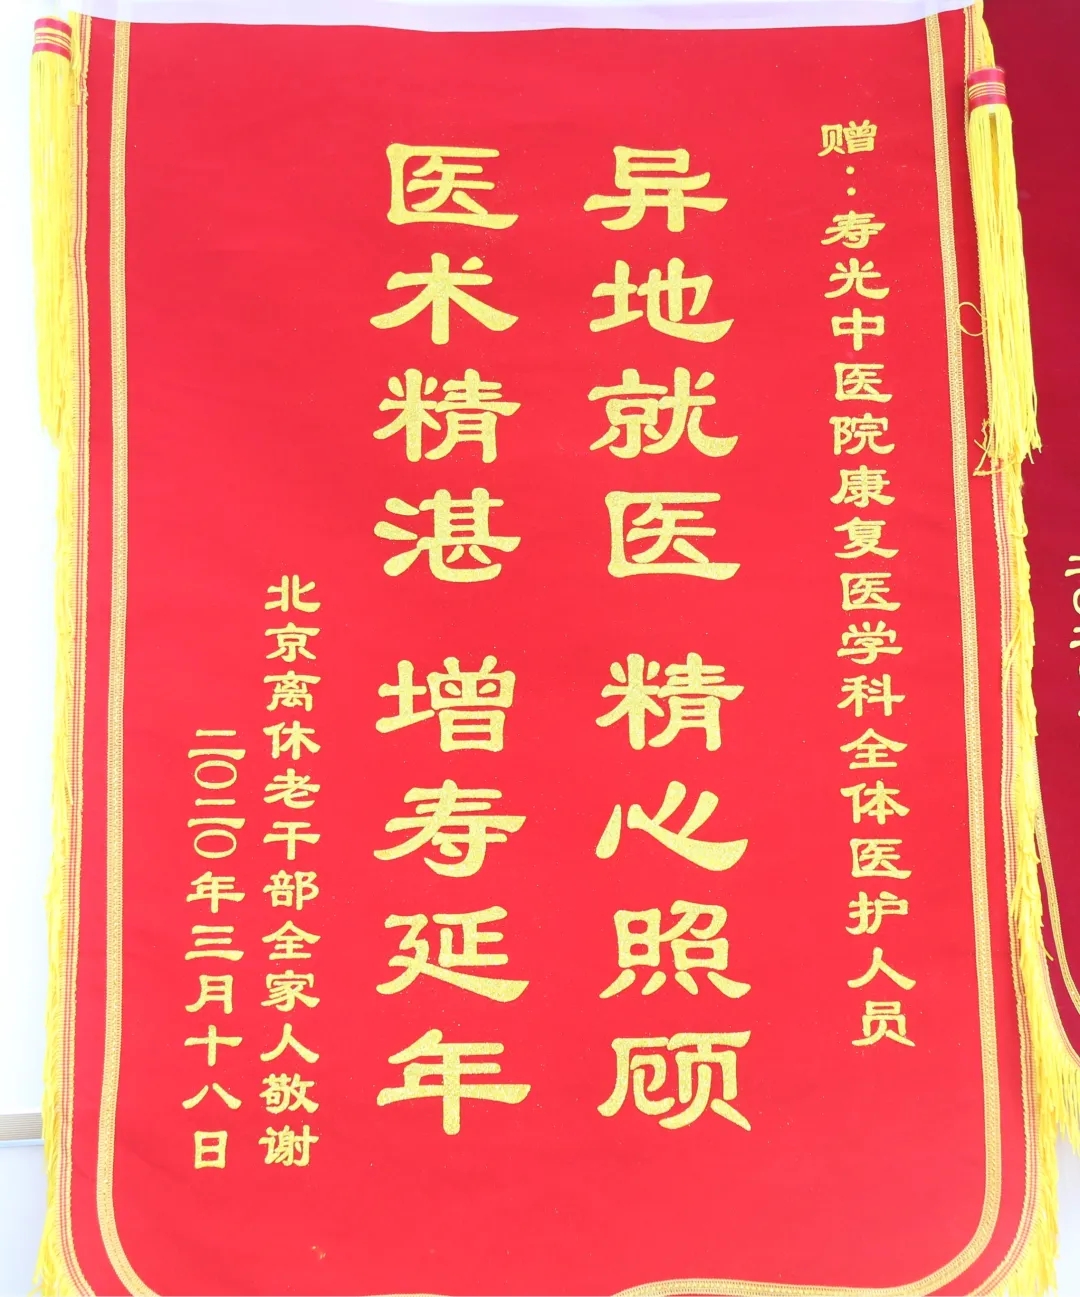 赠：寿光中医院康复医学科全体医护人员
异地就医 精心照顾
医术精湛 增寿延年
北京离休老干部全家人敬谢
二〇二〇年三月十八日